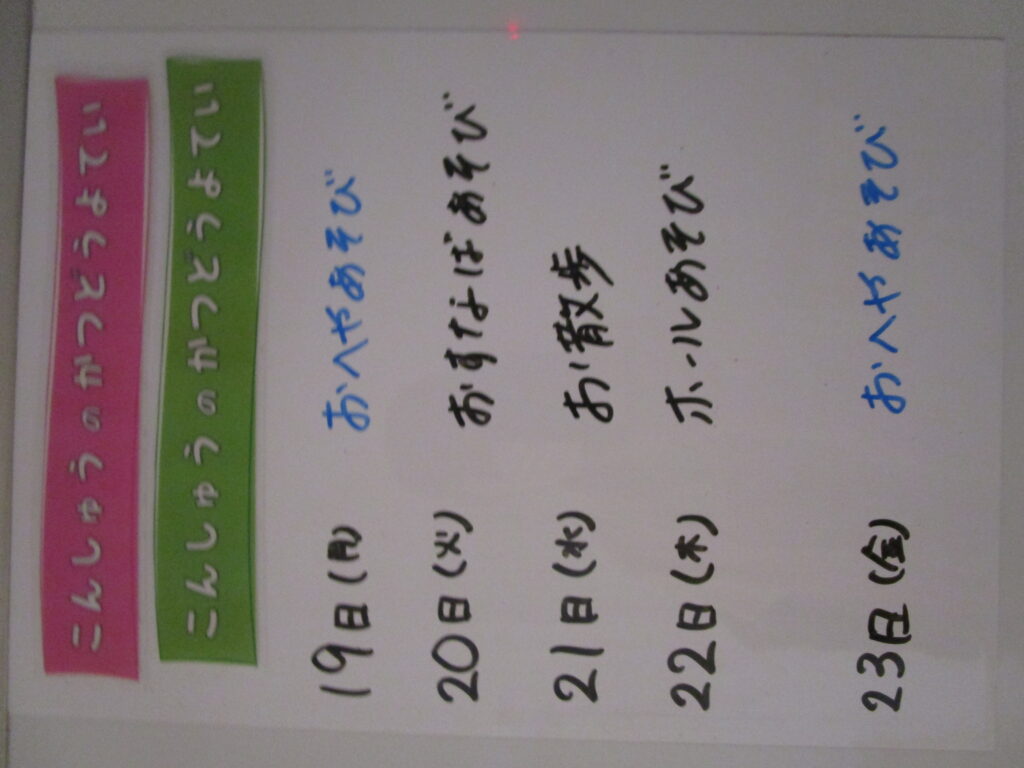 こんしゅうのかつどうよてい
こんしゅうのかつどうよてい
19日(月) おへやあそび
20日(火) おすなばあそび
21日(水) お散歩
22日(木) ホールあそび
23日(金) おへやあそび